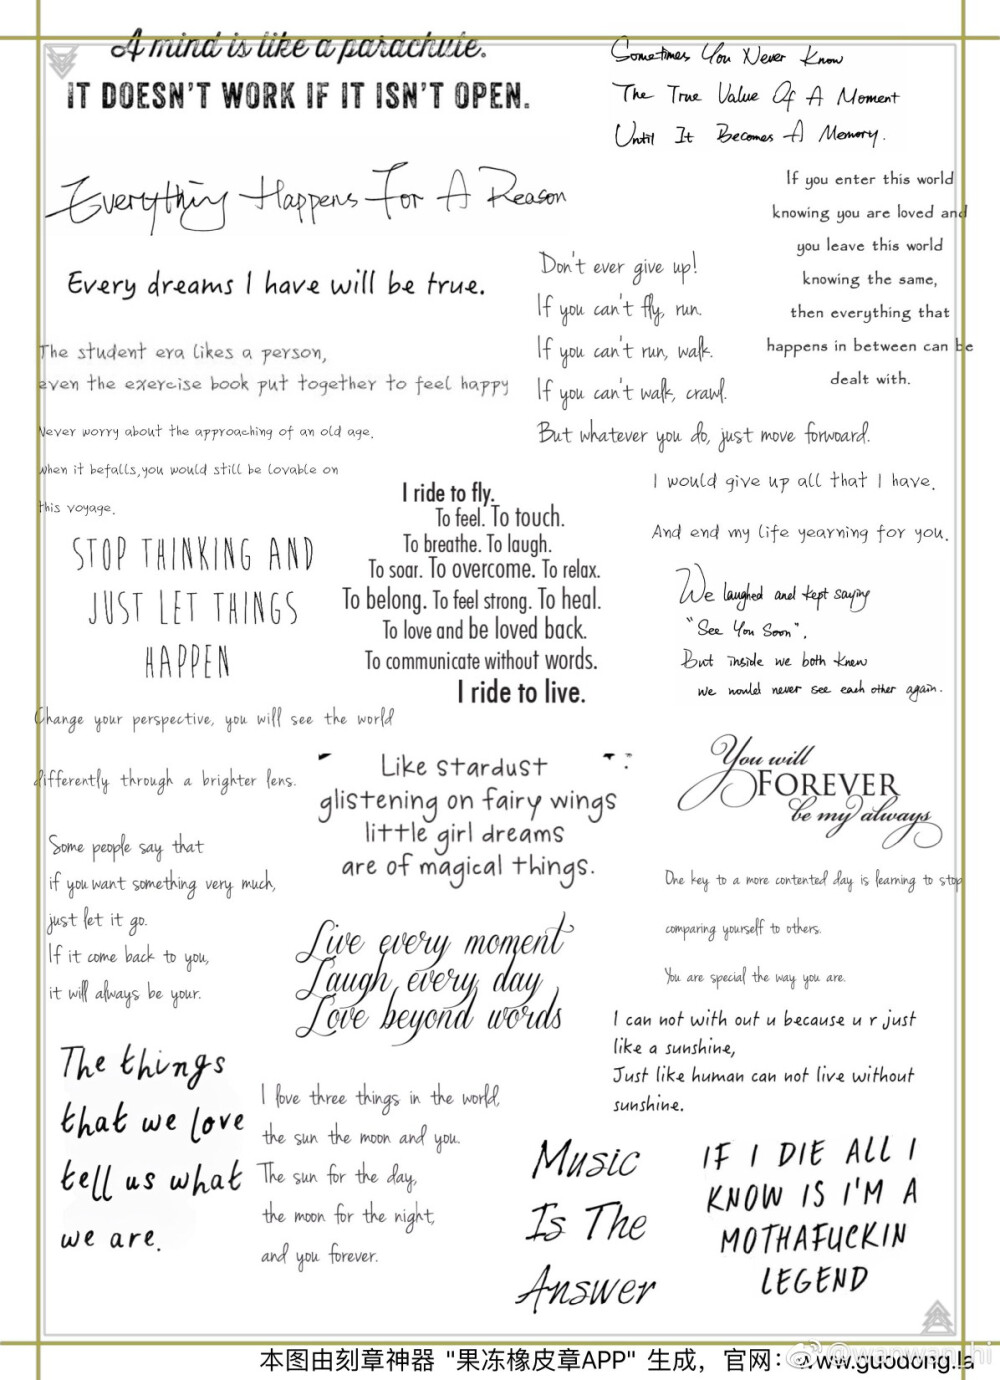 A mind is like a parachute.
IT DOESN'T WORK IF IT ISN'T OPEN.
Sometimes You Never Know
The True Value Of A Moment
Until It Becomes A Memory.
Everything Happens For A Reason
If you enter this world
knowing you are loved and
you leave this world
knowing the same,
then everything that
happens in between can be
dealt with.
Every dreams I have will be true.
Don't ever give up!
If you can't fly, run.
If you can't run, walk.
If you can't walk, crawl.
But whatever you do, just move forward.
The student era likes a person,
even the exercise book put together to feel happy
Never worry about the approaching of an old age,
when it befalls,you would still be lovable on
this voyage.
I would give up all that I have.
And end my life yearning for you.
I ride to fly.
To feel. To touch.
To breathe. To laugh.
To soar. To overcome. To relax.
To belong. To feel strong. To heal.
To love and be loved back.
To communicate without words.
I ride to live.
STOP THINKING AND
JUST LET THINGS
HAPPEN
We laughed and kept saying
"See You Soon".
But inside we both knew
we would never see each other again.
Change your perspective, you will see the world
differently through a brighter lens.
Like stardust
glistening on fairy wings
little girl dreams
are of magical things.
You will
FOREVER
be my always
Some people say that
if you want something very much,
just let it go.
If it come back to you,
it will always be your.
One key to a more contented day is learning to stop
comparing yourself to others.
You are special the way you are.
Live every moment
Laugh every day
Love beyond words
I can not with out u because u r just
like a sunshine,
Just like human can not live without
sunshine.
The things
that we love
tell us what
we are.
I love three things in the world,
the sun the moon and you.
The sun for the day,
the moon for the night,
and you forever.
Music
Is The
Answer
IF I DIE ALL I
KNOW IS I'M A
MOTHAFUCKIN
LEGEND
本图由刻章神器 "果冻橡皮章APP" 生成，官网：www.guodong.la